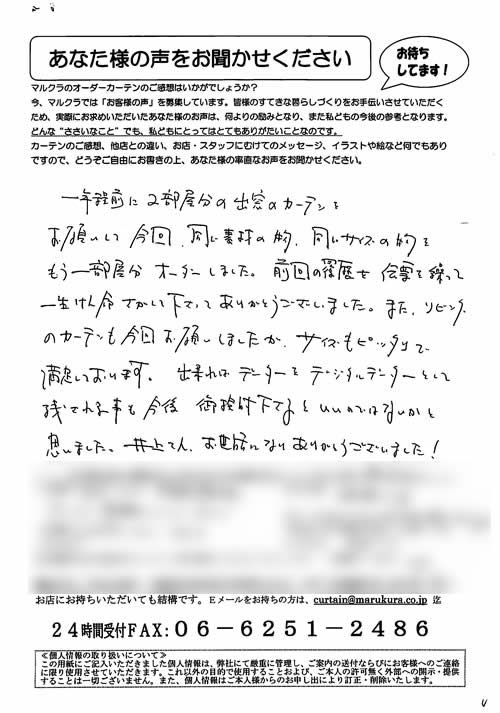 あなた様の声をお聞かせください
お待ち
してます！
マルクラのオーダーカーテンのご感想はいかがでしょうか？
今、マルクラでは「お客様の声」を募集しています。皆様のすてきな暮らしづくりをお手伝いさせていただく
ため、実際にお求めいただいたあなた様のお声は、何よりの励みとなり、また私どもの今後の参考となります。
どんな“ささいなこと”でも、私どもにとってはとてもありがたいことなのです。
カーテンのご感想、他店との違い、お店・スタッフにむけてのメッセージ、イラストや絵など何でもあり
ですので、どうぞご自由にお書きの上、あなた様の率直なお声をお聞かせください。
一年程前に2部屋分の出窓のカーテンを
お願いして今回、同じ素材の物、同じサイズの物を
もう一部屋分オーダーしました。前回の履歴を伝票を繰って
一生けん命さがして下さってありがとうございました。また、リビング
のカーテンも今回お願いしましたが、サイズもピッタリで
満足しております。出来ればデーターをデジタルデーターとして
残される事も今後御検討下さるといいのではないかと
思いました。井上さん、お世話になりありがとうございました！
お店にお持ちいただいても結構です。Eメールをお持ちの方は、curtain@marukura.co.jp 迄
24時間受付FAX:06-6251-2486
≪個人情報の取り扱いについて≫
この用紙にご記入いただきました個人情報は、弊社にて厳重に管理し、ご案内の送付ならびにお客様へのご連絡
に限り使用させていただきます。これ以外の目的で使用することおよび、ご本人の許可無く外部への開示・提供
することは一切ございません。また、個人情報はご本人様からのお申し出により訂正・削除いたします。